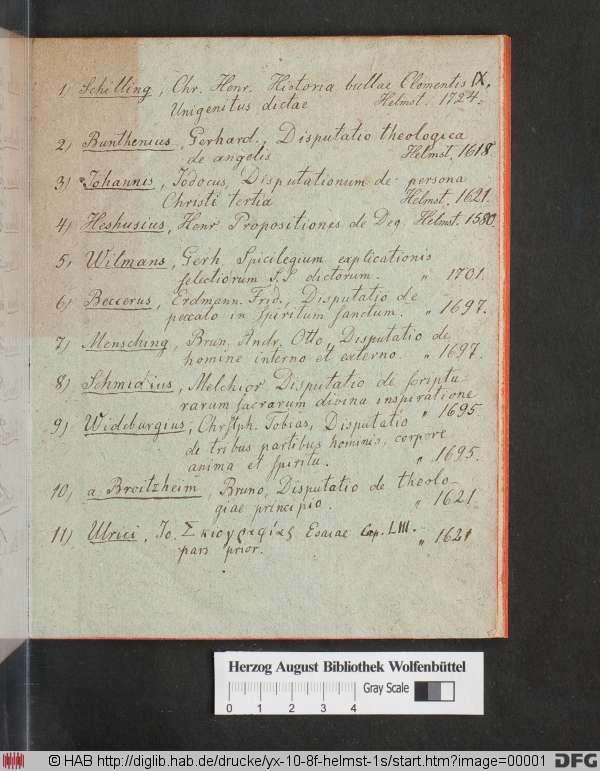 1) Schilling, Chr. Henr. Historia bullae Clementis IX.
Unigenitus dictae Helmst. 1724.
2) Banthenius, Gerhard., Disputatio theologica
de angelis Helmst. 1618.
3) Johannis, Jodocus, Disputationum de persona
Christi tertia Helmst. 1621.
4) Heshusius, Henr Propositiones de Deo Helmst. 1580.
5) Wilmans, Gerh. Spicilegium explicationis
selectiorum S.S dictorum. " 1701.
6) Beccerus, Erdmann. Frid., Disputatio de
peccato in spiritum sanctum. " 1697.
7) Mensching, Brun. Andr. Otto, Disputatio de
homine interno et externo. " 1697.
8) Schmidius, Melchior Disputatio de scriptu-
rarum sacrarum divina inspiratione
" 1695.
9) Wideburgius, Chrstph. Tobias, Disputatio
de tribus partibus hominis, corpore
anima et spiritu. " 1695.
10) a Broitzheim, Bruno, Disputatio de theolo-
giae principio. " 1621.
11) Ulrici, Jo. Σκιογραφίας Esaiae Cap. LIII.
pars prior. " 1621
Herzog August Bibliothek Wolfenbüttel
Gray Scale
0 1 2 3 4
© HAB http://diglib.hab.de/drucke/yx-10-8f-helmst-1s/start.htm?image=00001
DFG